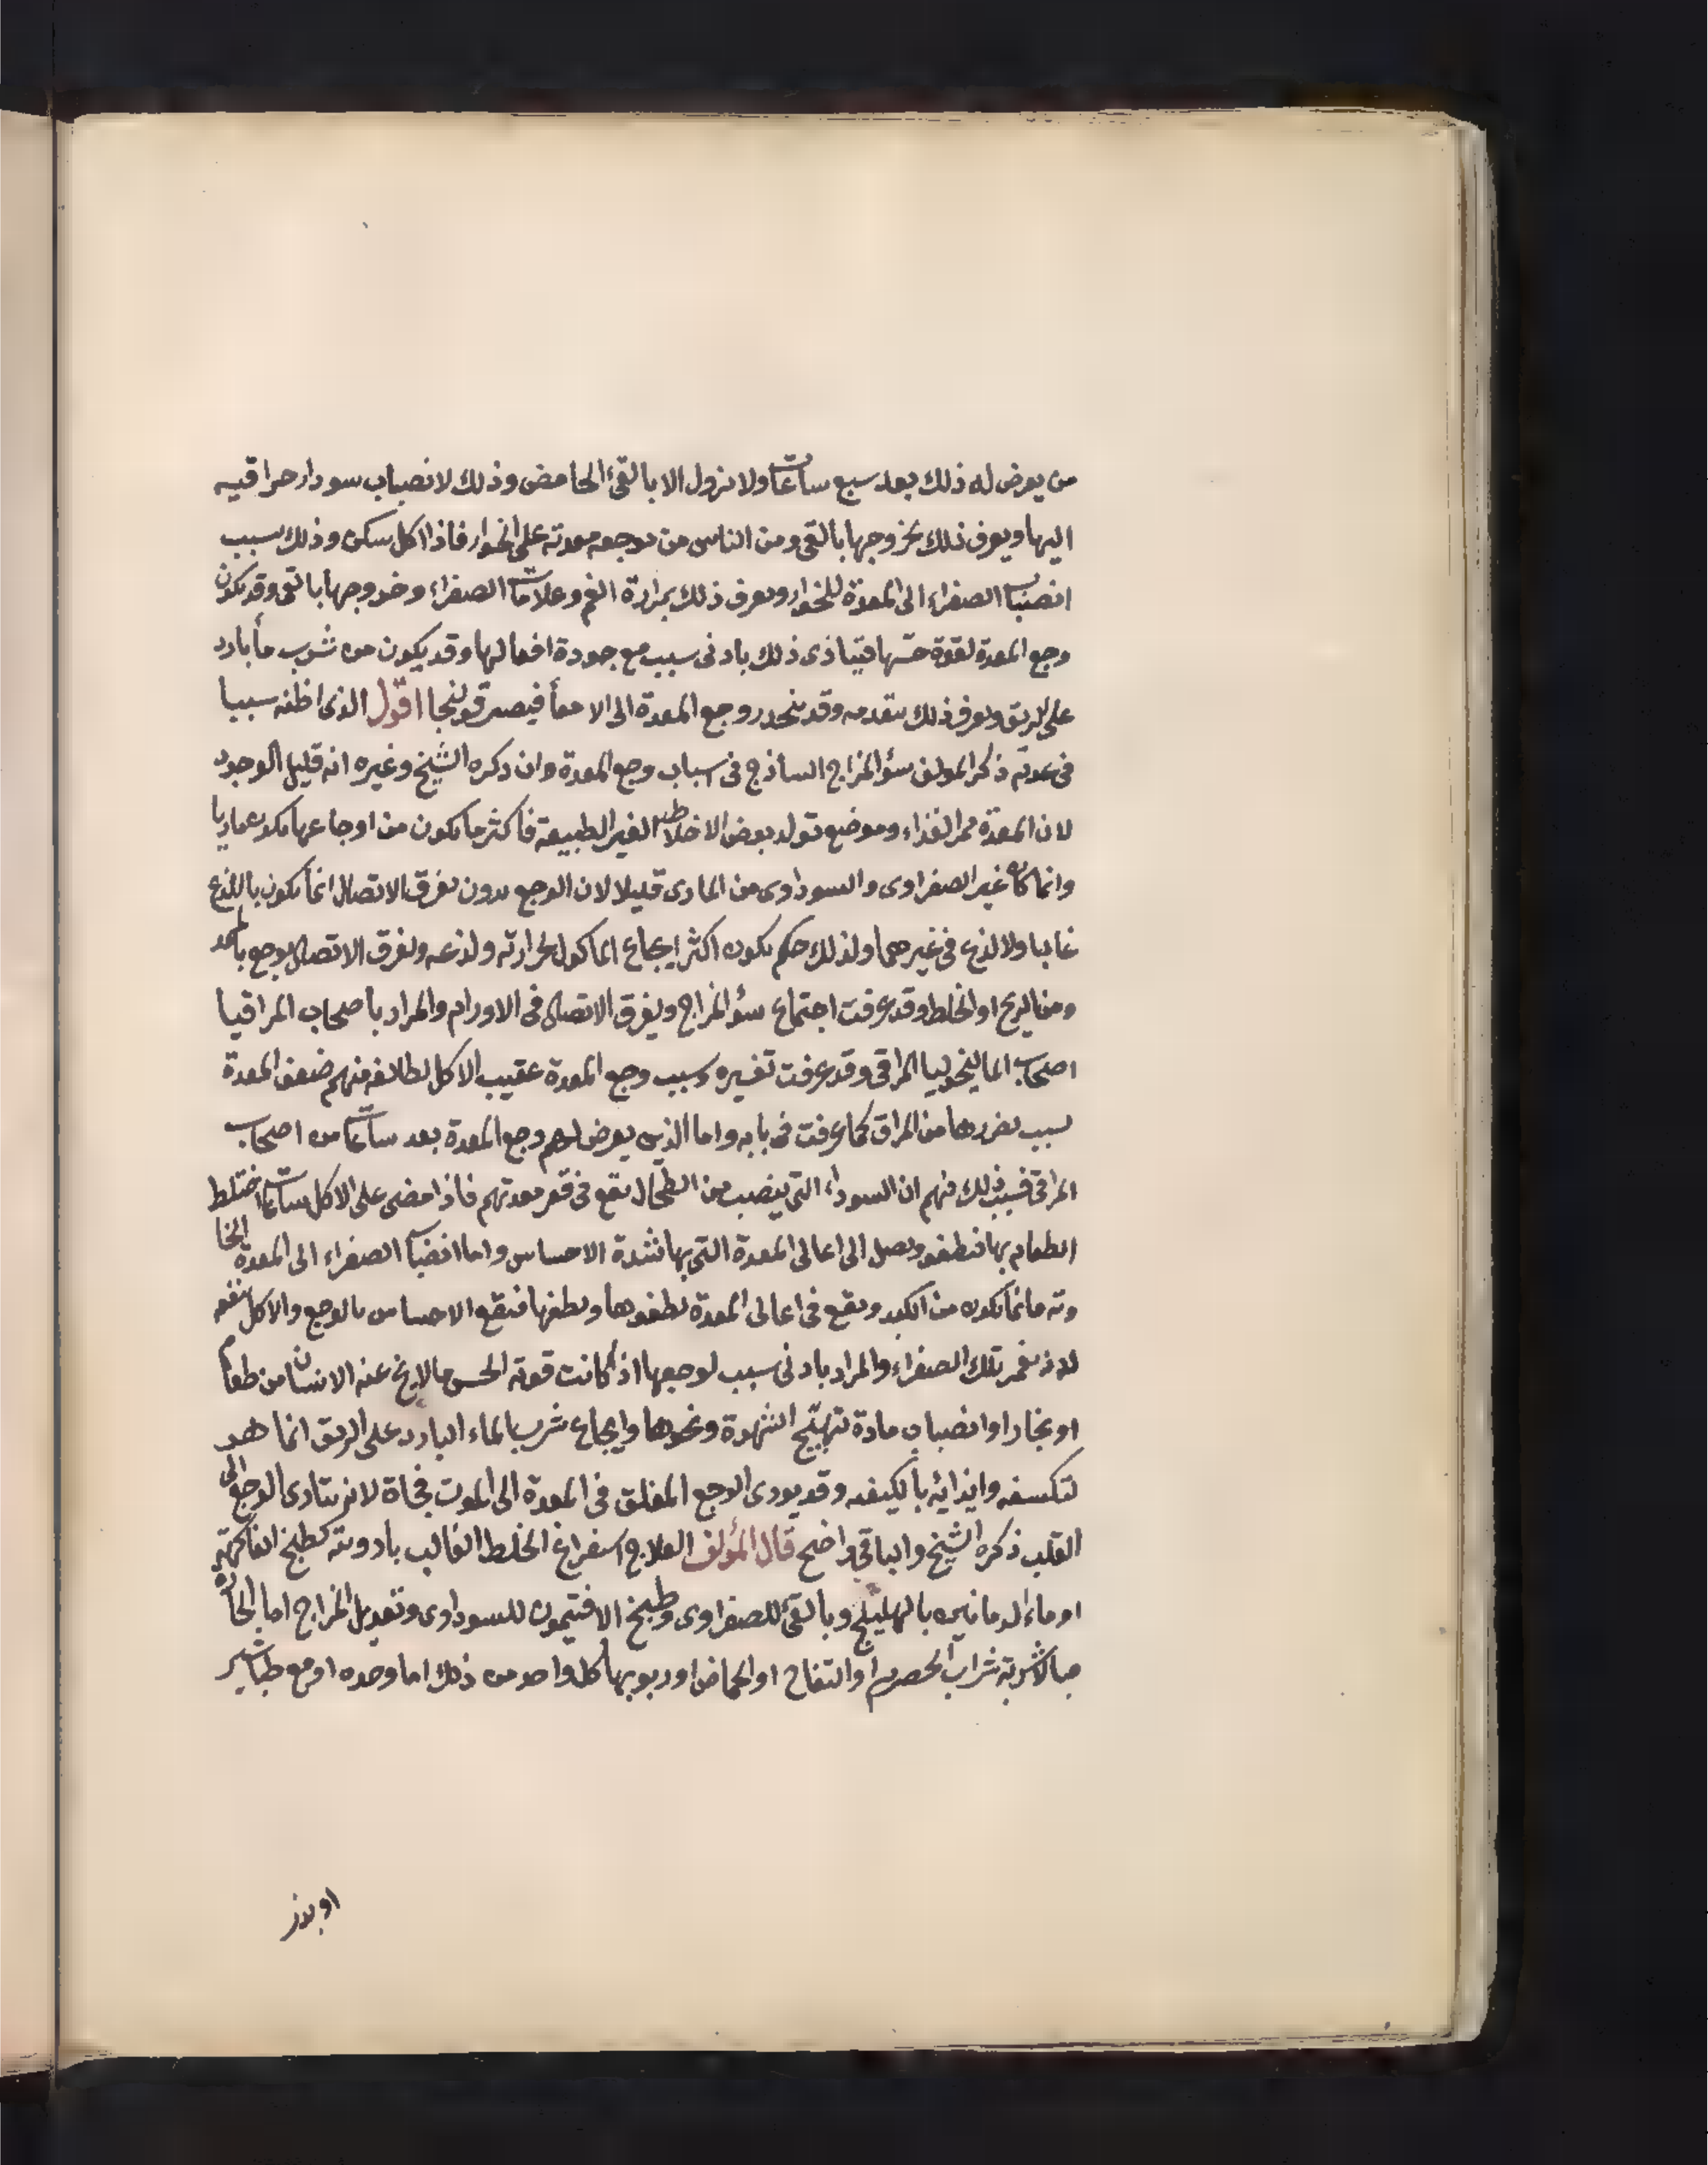 من يعرض له ذلك بعد سبع ساعات ولا نزول الا بالقئ الحامض وذلك لانصباب سوداء حراقيه
اليها ويعرف ذلك بخروجها بالقى ومن الناس من توجعه معدته على الخوا فاذا اكل سكن وذلك بسبب
انصباب الصفراء الى المعدة للخوا ويعرف ذلك بمرارة الفم وعلامات الصفراء وخروجها بالقى وقد يكون
وجع المعدة لقوة حسّها فيتاذى ذلك بادنى سبب مع جودة افعالها وقد يكون من شرب مأ بارد
على الريق ويعرف ذلك بتقدمه وقد ينحدر وجع المعدة الى الامعأ فيصير قولنجا اقول الذى اظنه سببا
فى عدم ذكر المولف سؤ المزاج الساذج فى اسباب وجع المعدة وان ذكره الشيخ وغيره انه قليل الوجود
لان المعدة ممر الغذاء وموضع تولد بعض الاخلاط الغير الطبيعة فأكثر ما يكون من اوجاعها يكون ماديا
وانما كان غير الصفراوى والسوداوى من المادى قليلا لان الوجع بدون تفرق الاتصال انما يكون باللذع
غالبا ولا لذع فى غيرهما ولذلك حكم بكون اكثر ايجاع الماكول لحرارته ولذعه وتفرق الاتصال يوجع بالمد
ومن الريح او الخلط وقد عرفت اجتماع سؤ المزاج ويفرق الاتصال فى الاورام والمراد باصحاب المراقيا
اصحاب الماليخوليا المراقى وقد عرفت تفسيره وسبب وجع المعدة عقيب الاكل لطائفه منهم ضعف المعدة
بسبب تضررها من المراق كما عرفت فى بابه واما الذين يعرض لهم وجع المعدة بعد ساعات من اصحاب
المراقى فسبب ذلك فيهم ان السوداء التى ينصب من الطحال تقع فى قعر معدتهم فاذا مضى على الاكل ساعات اختلط
الطعام بها فتطفو وتصل الى اعالى المعدة التى بها شدة الاحساس واما انصباب الصفراء الى المعدة الخا
وته فانما يكون من الكبد وتقع فى اعالى المعدة لطفوها ولطفها فتقع الاحساس بالوجع والاكل ينفعه
لانه يغمر تلك الصفراء والمراد بادنى سبب لوجعها اذا كانت قوته الحس ما لا يخ عنه الانسان من طعام
او بخار او انصباب مادة تهيّج الشهوة ونحوها وايجاع شرب الماء البارد على الريق انما هو
لتكسفه وايذائه بالكيفه وقد يودى الوجع المقلق فى المعدة الى الموت فجاة لانه يتادى الوجع الى
القلب ذكره الشيخ والباقى واضح قال المؤلف العلاج استفراغ الخلط الغالب بادويته كطبخ الفاكهة
او ماء الرمانين بالهليلج وبالقئ للصفراوى وطبخ الافتيمون للسوداوى وتعديل المزاج اما الحارة
فبالاشربة شراب الحصرم او التفاح او الحماض او ربوبها كل واحد من ذلك اما وحده او مع طباشير
او بزر